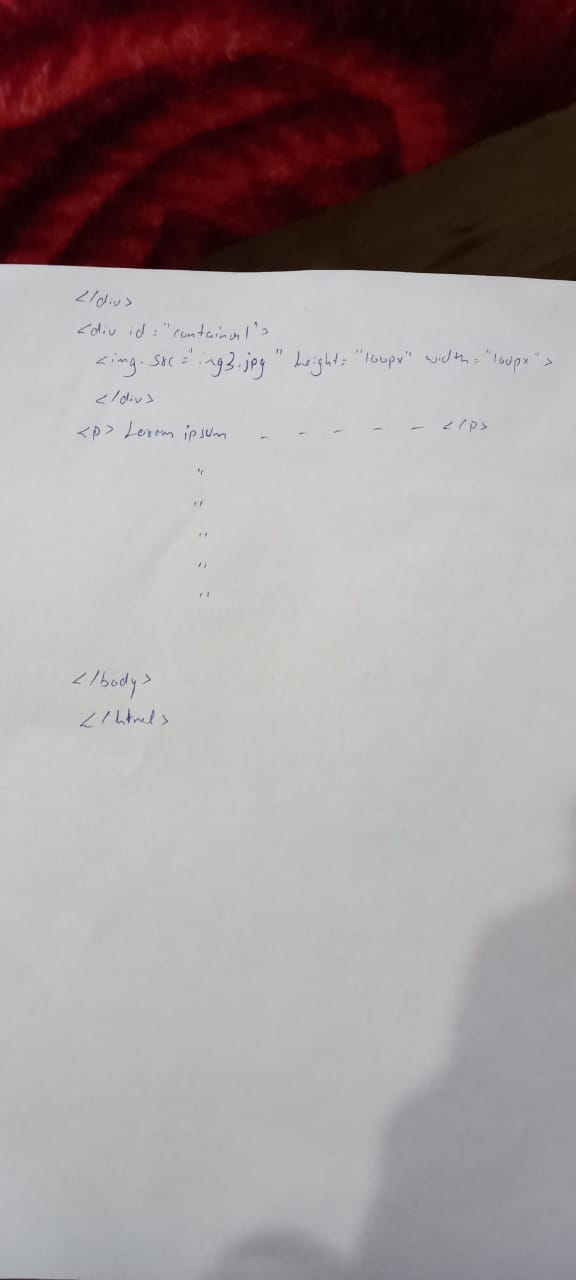 </div>
<div id="container1">
<img. src="img3.jpg" height="100px" width="100px">
</div>
<p> Lorem ipsum - - - - - </p>
"
"
"
"
"
</body>
</html>